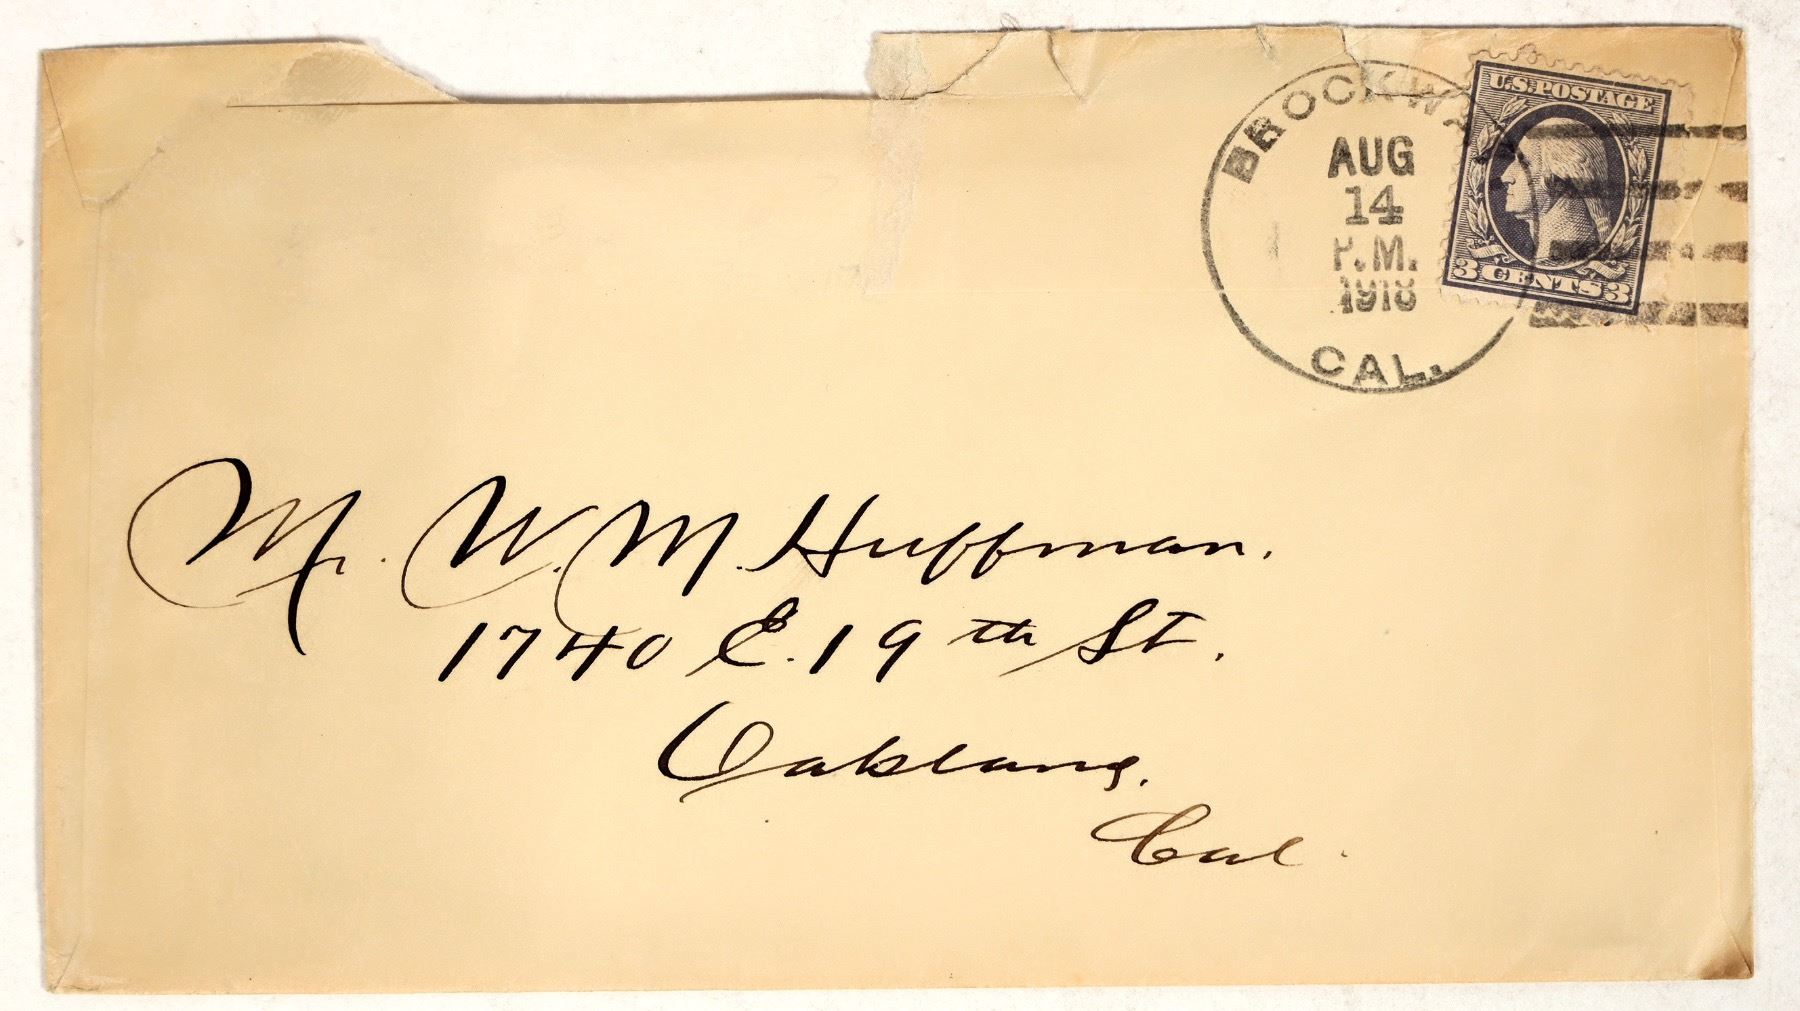 BROCKWAY
AUG
14
P.M.
1918
CAL.
U.S. POSTAGE
3 CENTS 3
Mr. W. M. Huffman.
1740 E. 19th St.
Oakland,
Cal.